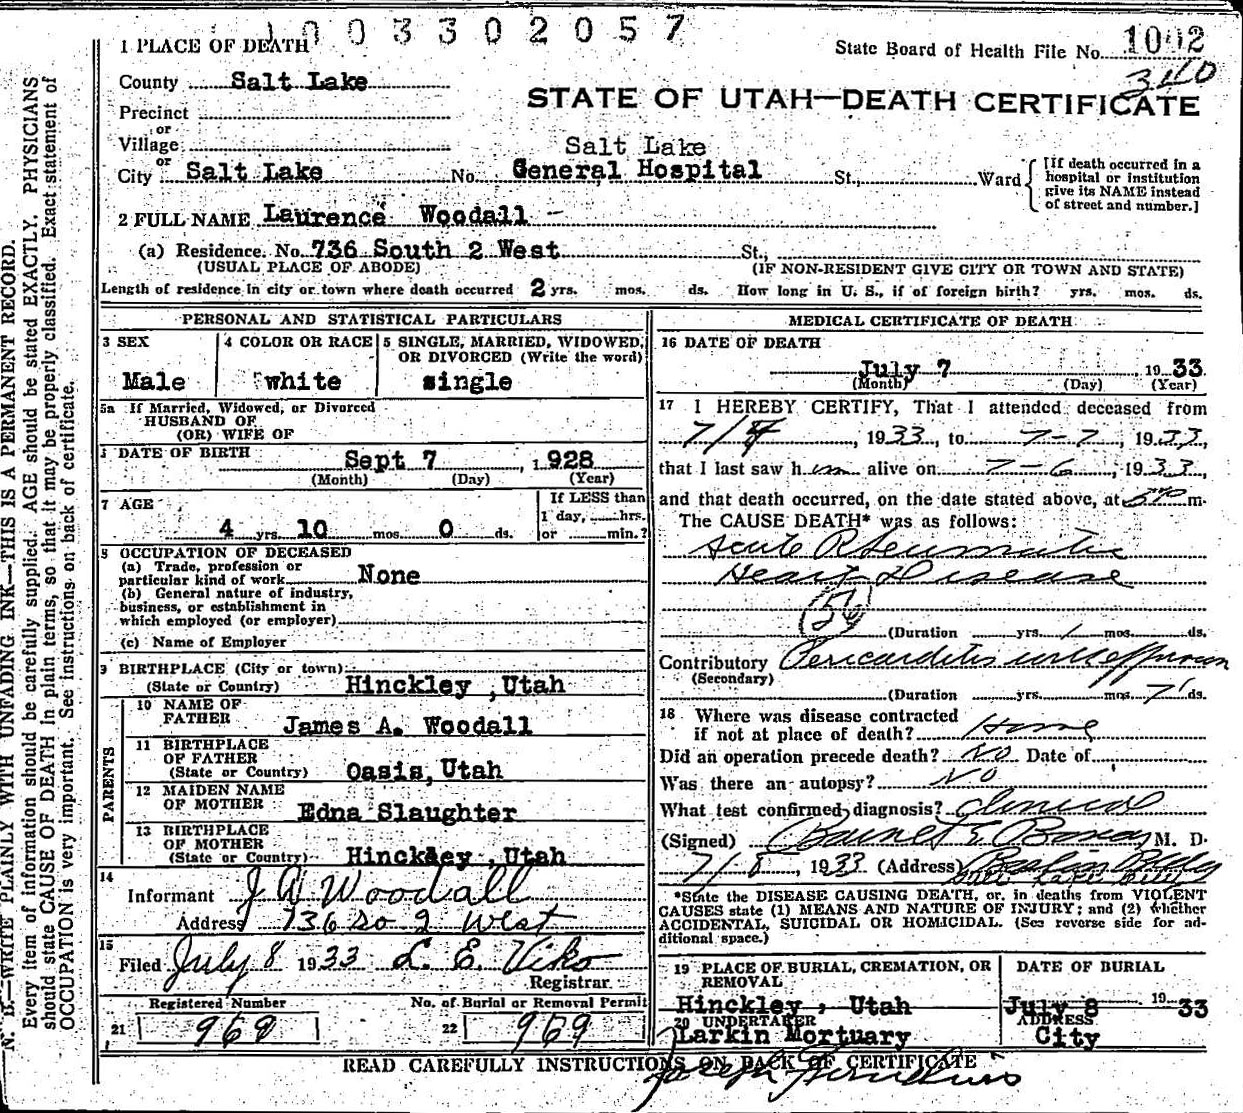 1003302057
1 PLACE OF DEATH
State Board of Health File No. 1002
3410
County Salt Lake
STATE OF UTAH—DEATH CERTIFICATE
Precinct
or
Village
Salt Lake
or
City Salt Lake No. General Hospital St., Ward
[If death occurred in a
hospital or institution
give its NAME instead
of street and number.]
2 FULL NAME Laurence Woodall -
(a) Residence. No. 736 South 2 West St.,
(USUAL PLACE OF ABODE) (IF NON-RESIDENT GIVE CITY OR TOWN AND STATE)
Length of residence in city or town where death occurred 2 yrs. mos. ds. How long in U. S., if of foreign birth? yrs. mos. ds.
PERSONAL AND STATISTICAL PARTICULARS
3 SEX
Male
4 COLOR OR RACE
white
5 SINGLE, MARRIED, WIDOWED,
OR DIVORCED (Write the word)
single
5a If Married, Widowed, or Divorced
HUSBAND OF
(OR) WIFE OF
DATE OF BIRTH
Sept 7, 1928
(Month) (Day) (Year)
7 AGE
4 yrs. 10 mos. 0 ds.
If LESS than
1 day, hrs.
or min.?
8 OCCUPATION OF DECEASED
(a) Trade, profession or
particular kind of work None
(b) General nature of industry,
business, or establishment in
which employed (or employer)
(c) Name of Employer
9 BIRTHPLACE (City or town)
(State or Country) Hinckley, Utah
PARENTS
10 NAME OF
FATHER James A. Woodall
11 BIRTHPLACE
OF FATHER
(State or Country) Oasis, Utah
12 MAIDEN NAME
OF MOTHER Edna Slaughter
13 BIRTHPLACE
OF MOTHER
(State or Country) Hinckley, Utah
14
Informant J A Woodall
Address 736 So 2 West
15
Filed July 8 1933 L. E. Viko
Registrar.
Registered Number
21 968
No. of Burial or Removal Permit
22 969
MEDICAL CERTIFICATE OF DEATH
16 DATE OF DEATH
July 7, 1933
(Month) (Day) (Year)
17 I HEREBY CERTIFY, That I attended deceased from
7/4, 1933, to 7-7, 1933,
that I last saw him alive on 7-6, 1933,
and that death occurred, on the date stated above, at m.
The CAUSE DEATH* was as follows:
Acute Rheumatic
Heart Disease
(56)
(Duration yrs. 1 mos. ds.
Contributory Pericarditis with effusion
(Secondary)
(Duration yrs. mos. 7 ds.
18 Where was disease contracted
if not at place of death? Home
Did an operation precede death? No Date of
Was there an autopsy? No
What test confirmed diagnosis? Clinical
(Signed) Barnet E Bonar, M. D.
7/8, 1933 (Address) Boston Bldg
Salt Lake City
*State the DISEASE CAUSING DEATH, or, in deaths from VIOLENT
CAUSES state (1) MEANS AND NATURE OF INJURY; and (2) whether
ACCIDENTAL, SUICIDAL OR HOMICIDAL. (See reverse side for ad-
ditional space.)
19 PLACE OF BURIAL, CREMATION, OR
REMOVAL
Hinckley, Utah
DATE OF BURIAL
July 8 1933
20 UNDERTAKER
Larkin Mortuary
ADDRESS
City
READ CAREFULLY INSTRUCTIONS ON BACK OF CERTIFICATE
N. B.—WRITE PLAINLY WITH UNFADING INK—THIS IS A PERMANENT RECORD.
Every item of information should be carefully supplied. AGE should be stated EXACTLY. PHYSICIANS
should state CAUSE OF DEATH in plain terms, so that it may be properly classified. Exact statement of
OCCUPATION is very important. See instructions on back of certificate.